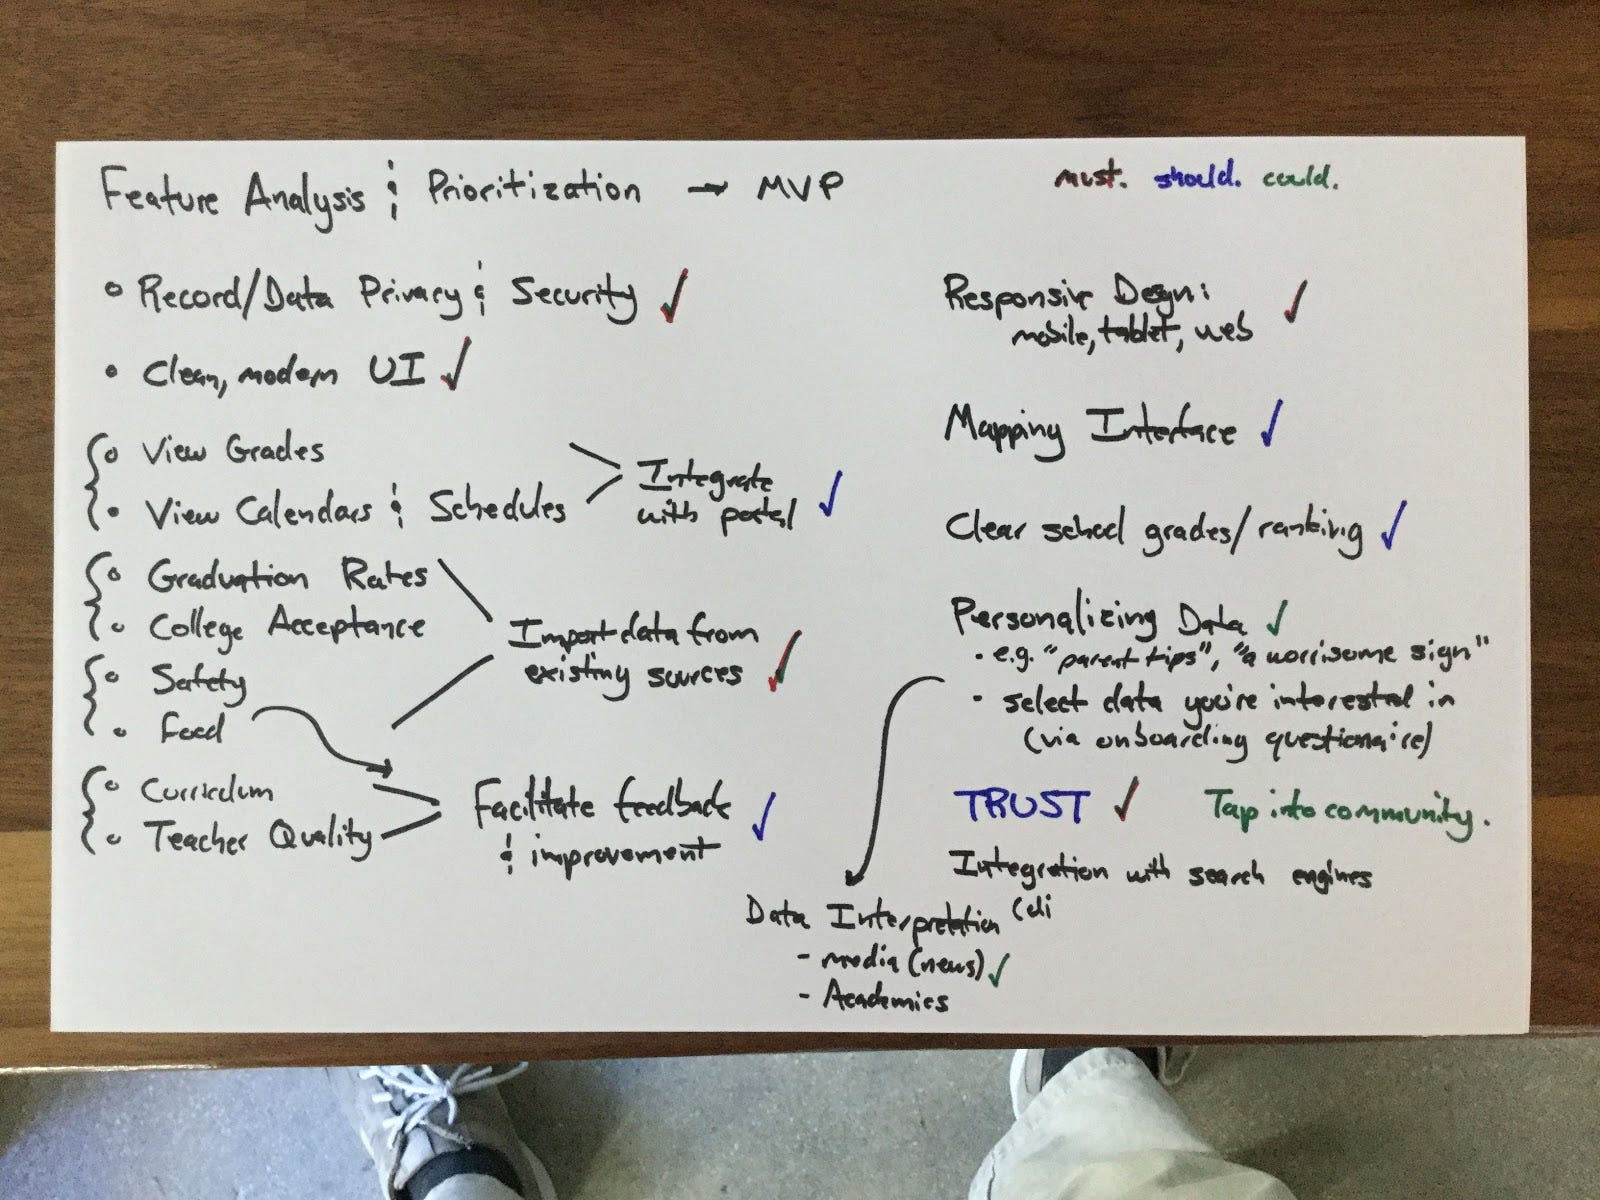 Feature Analysis & Prioritization → MVP
must. should. could.
• Record/Data Privacy & Security ✓
• Clean, modern UI ✓
• View Grades
• View Calendars & Schedules
Integrate
with portal ✓
• Graduation Rates
• College Acceptance
• Safety
• Food
Import data from
existing sources ✓
• Curriculum
• Teacher Quality
Facilitate feedback
& improvement ✓
Responsive Design: ✓
mobile, tablet, web
Mapping Interface ✓
Clear school grades/ranking ✓
Personalizing Data ✓
• e.g. "parent tips", "a worrisome sign"
• select data you're interested in
(via onboarding questionaire)
TRUST ✓ Tap into community.
Integration with search engines
Data Interpretation (di
- media (news) ✓
- Academics